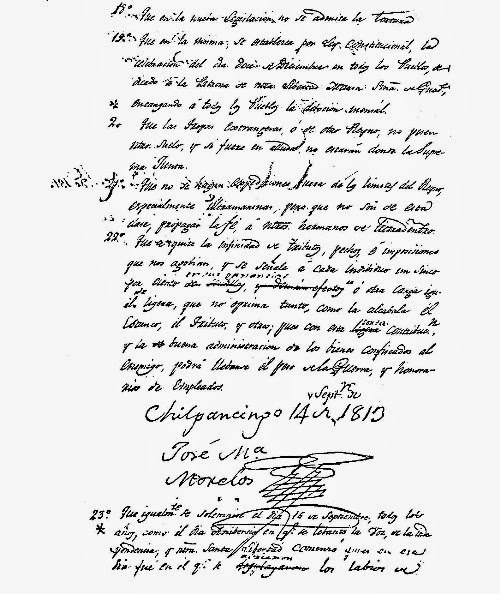 18º Que en la nueva Legislacion no se admita la Tortura
19º Que en la misma se establezca por Ley Constitucional, la
celebracion del dia doce de Diciembre en todos los Pueblos, de
dicado á la Patrona de nuestra Livertad Maria Sma. de Guadl.,
* encargando á todos los Pueblos la devocion mensal.
2 Que las tropas extrangeras, ó de otro Reyno, no pisen
ntro. Suelo, y si fuere en ayuda no estarán donde la Supre
ma Junta.
Que no se hagan expediciones fuera de los limites del Reyno,
especialmente Ultramarinas, pero que no son de esta
clase, propagar la fé, á ntros. hermanos de tierradentro.
22º Que se quite la infinidad de tributos, pechos, é impociciones
que nos agobian, y se señale á cada individuo un cinco
en sus ganancias
por ciento ú otra carga igu
al ligera, que no oprima tanto, como la alcabala, el
Estanco, el Tributo, y otros; pues con esta corta contribucn.
y la buena administracion de los bienes confiscados al
Enemigo, podrá llebarse el peso de la Guerra, y honora
rios de Empleados.
y Septre. de
Chilpancingo 14 1813
José Ma.
Morelos
23º Que igualmte. se solemnise el dia 16 de Septiembre, todos los
* años, como el dia en que se lebantó la Voz, de la Inde
pendencia, y ntra. Santa Libertad comenzó, pues en ese
dia fué en el qe. se los labios de